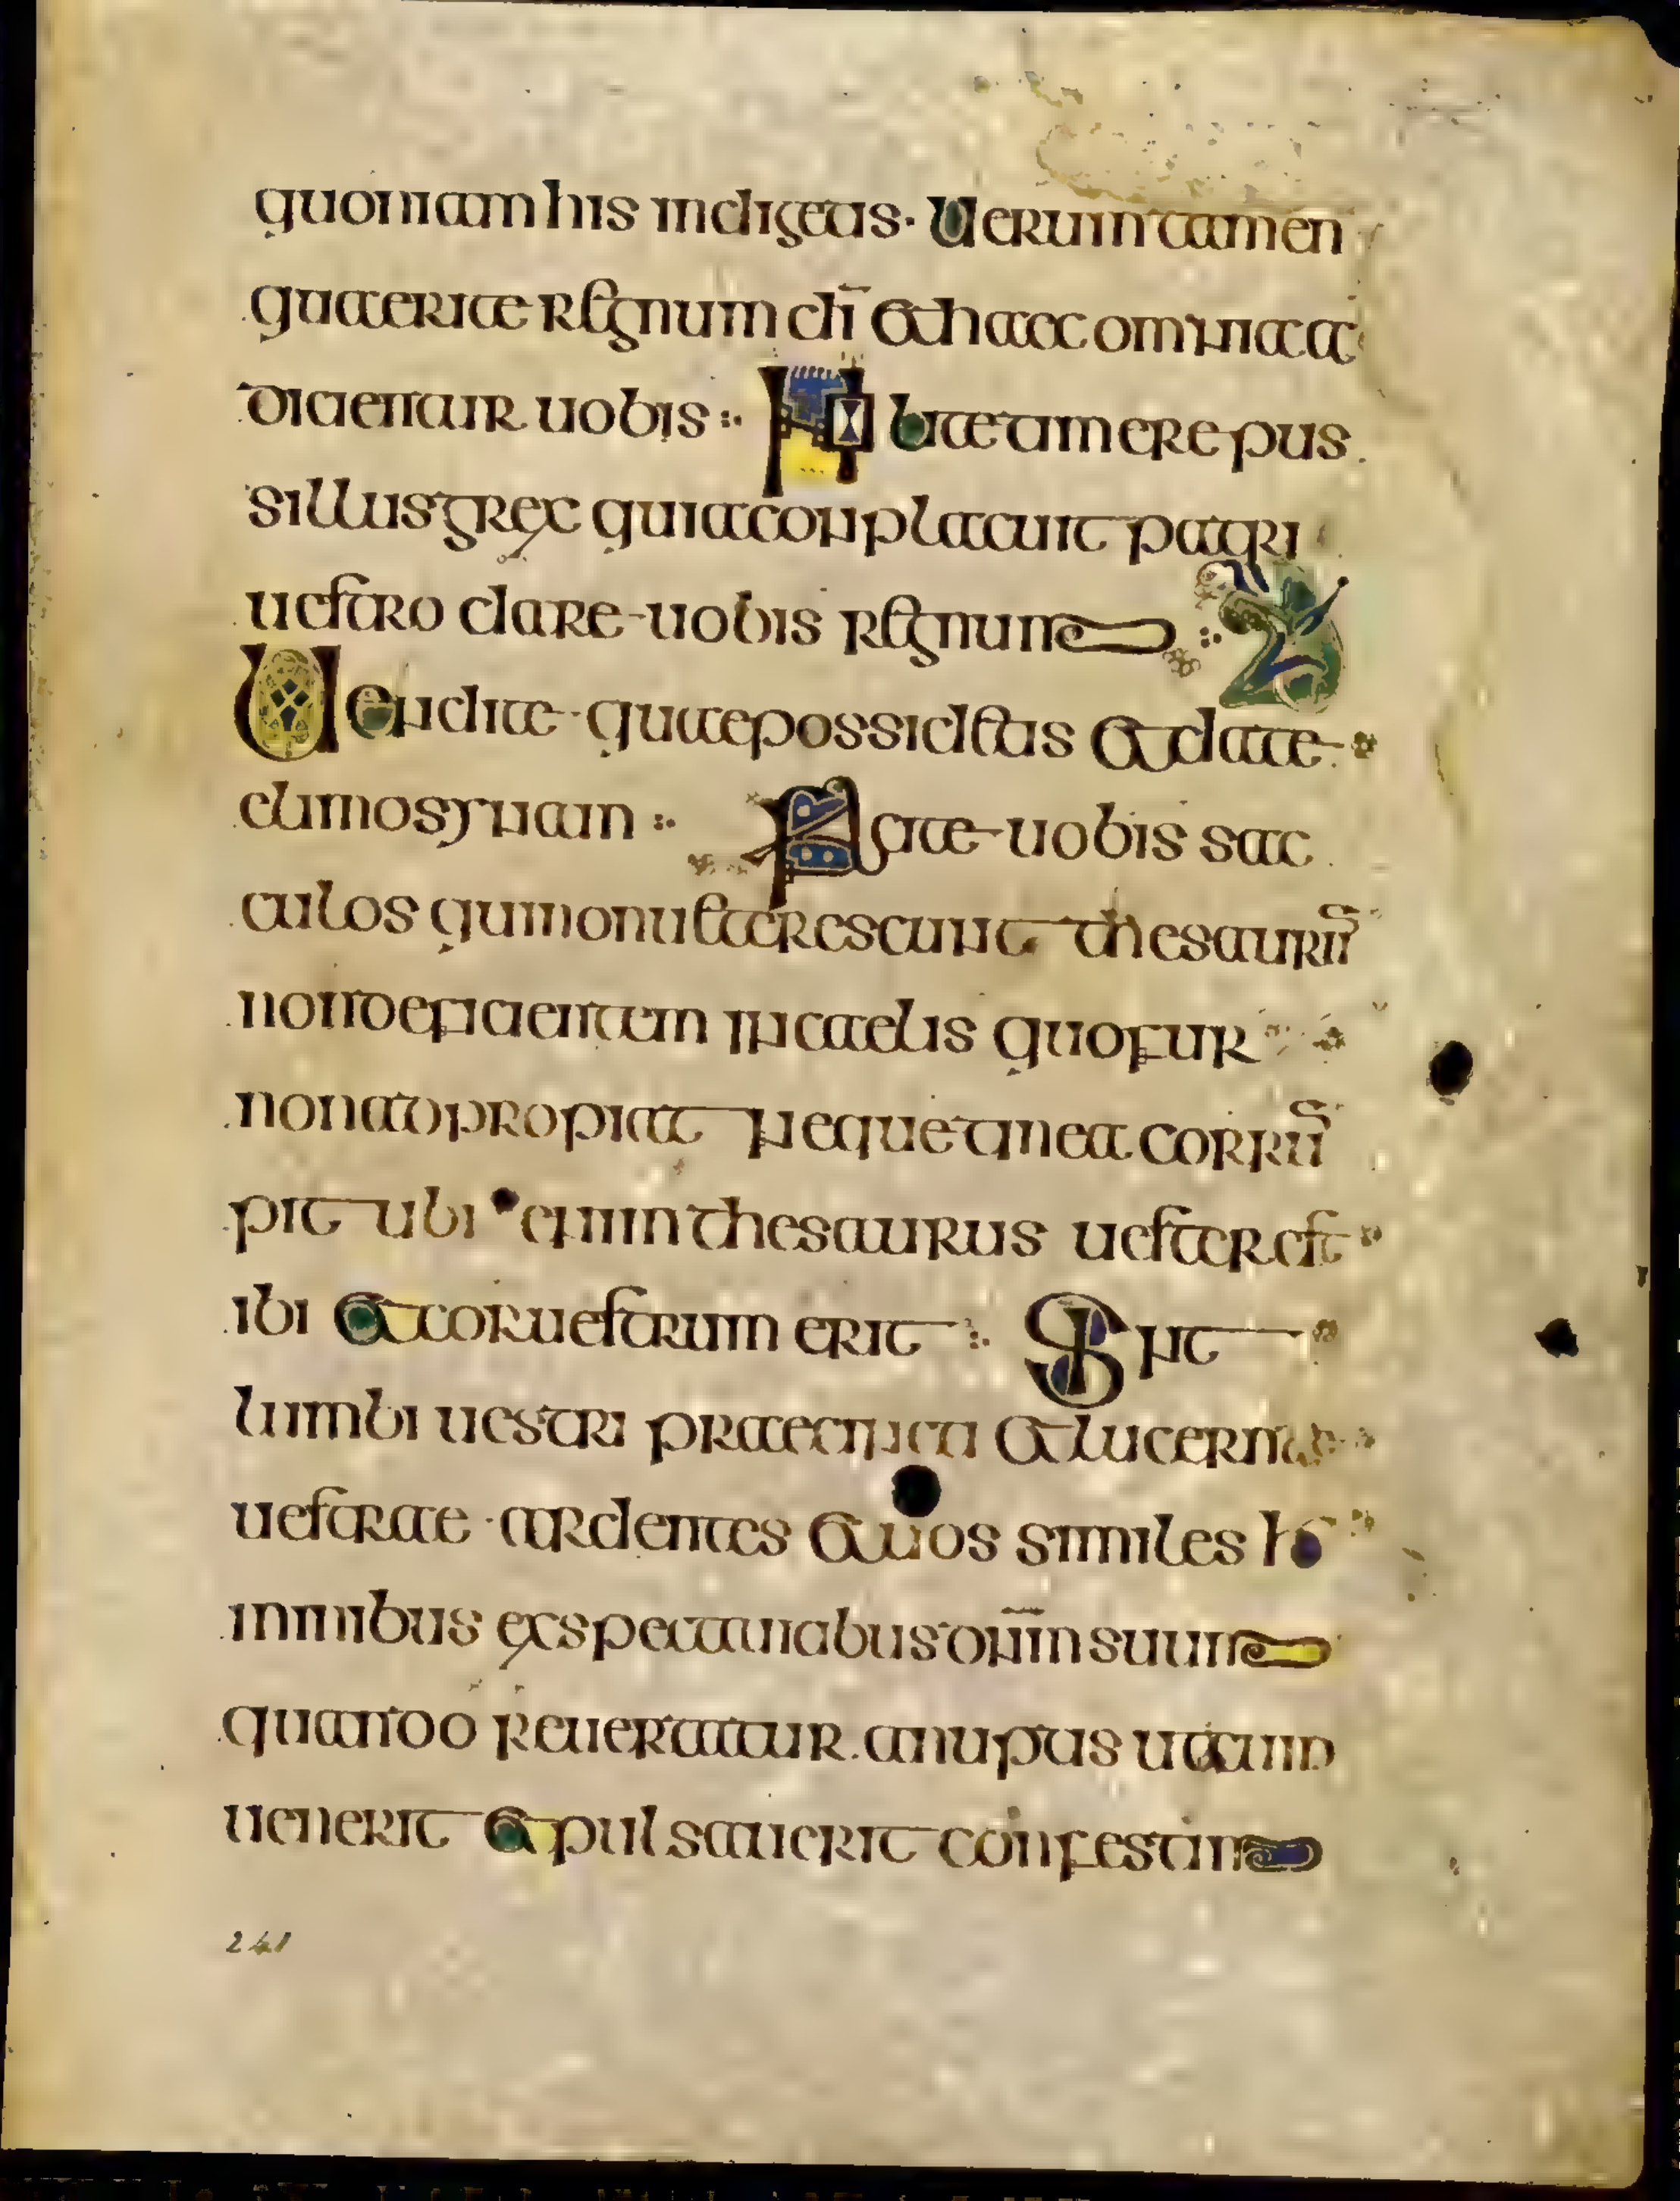 quoniam his indigetis· Uerumtamen
quaerite regnum dī et haec omnia a
dicientur uobis :· Nolite timere pus
sillus grex quia conplacuit patri
uestro dare uobis regnum :·
Uendite · quae possidetis et date
elimosynam :· Facite uobis sac
culos qui non ueterescunt thesaurū
non deficientem in caelis quo fur
non adpropiat neque tinea corrū
pit ubi enim thesaurus uester est
ibi et cor uestrum erit :· Sint
lumbi uestri praecincti et lucernae
uestrae · ardentes et uos similes ho
minibus exspectantibus dn̄m suum
quando reuertatur a nuptis ut cum
uenerit et pulsauerit confestim
241